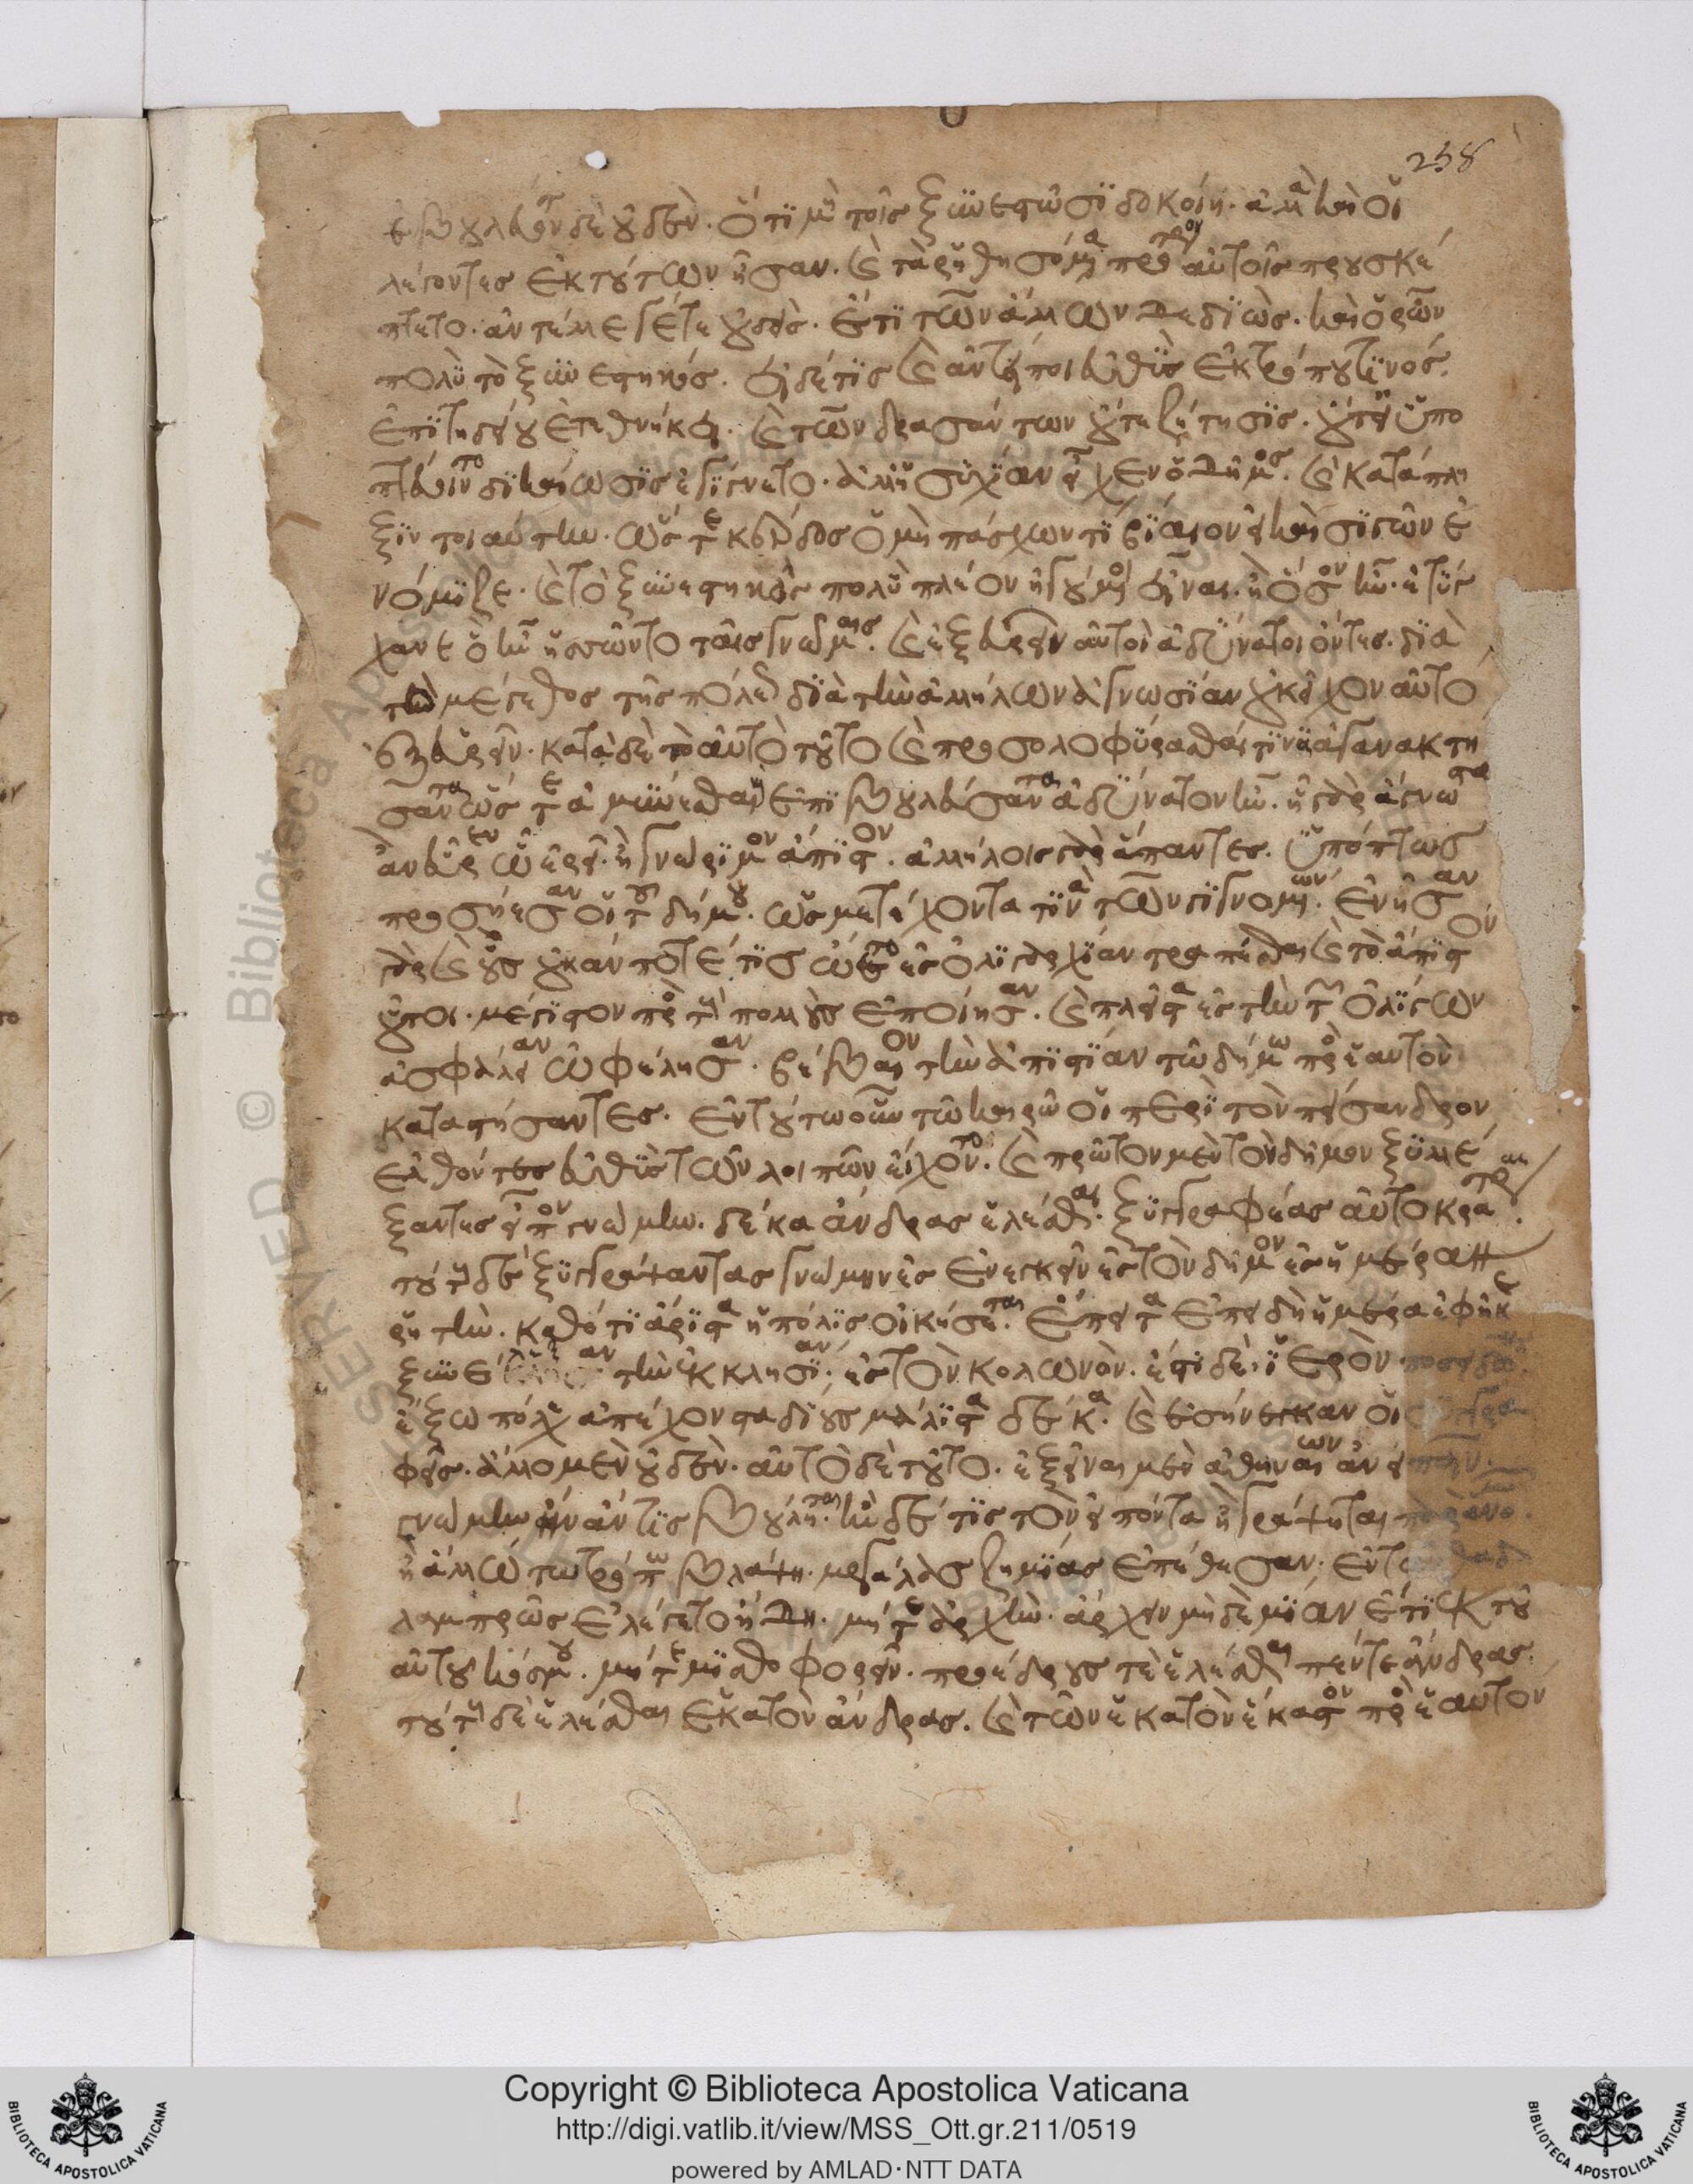 258
ἐβούλευον δὲ οὐδὲν ὅτι μὴ τοῖς ξυνεστῶσι δοκοίη· ἀλλὰ καὶ οἱ
λέγοντες ἐκ τούτων ἦσαν. καὶ τὰ ῥηθησόμενα πρότερον αὐτοῖς προυσκέ
πτετο. ἀντέλεγέ τε οὐδεὶς ἔτι τῶν ἄλλων δεδιὼς καὶ ὁρῶν
πολὺ τὸ ξυνεστηκός. εἰ δέ τις καὶ ἀντείποι εὐθὺς ἐκ τρόπου τινὸς
ἐπιτηδείου ἐτεθνήκει. καὶ τῶν δρασάντων οὔτε ζήτησις. οὔτε εἰ ὑπο
πτεύοιντο δικαίωσις ἐγίγνετο. ἀλλ' ἡσυχίαν εἶχεν ὁ δῆμος. καὶ κατάπλη
ξιν τοιαύτην. ὥστε κέρδος ὁ μὴ πάσχων τι βίαιον εἰ καὶ σιγῴη ἐ
νόμιζε. καὶ τὸ ξυνεστηκὸς πολὺ πλέον ἡγούμενοι εἶναι. ἢ ὅσον ἦν. ἐτύγ
χανεν ὂν ἡσσῶντο ταῖς γνώμαις. καὶ ἐξευρεῖν αὐτοὶ ἀδύνατοι ὄντες. διὰ
τὸ μέγεθος τῆς πόλεως διὰ τὴν ἀλλήλων ἀγνωσίαν οὐκ εἶχον αὐτὸ
ἐξευρεῖν. κατὰ δὲ τὸ αὐτὸ τοῦτο καὶ προσολοφύρασθαί τινι ἀγανακτή
σαντα ὥστε ἀμύνεσθαι ἐπιβουλεύσαντα ἀδύνατον ἦν. ἢ γὰρ ἀγνῶτα
ἂν εὗρεν ᾧ ἐρεῖ. ἢ γνώριμον ἄπιστον. ἀλλήλοις γὰρ ἅπαντες. ὑπόπτως
προσῄεσαν οἱ τοῦ δήμου. ὡς μετέχοντά τινα τῶν γιγνομένων. ἐνῆσαν
γὰρ καὶ οὓς οὐκ ἄν ποτέ τις ᾤετο ἐς ὀλιγαρχίαν τραπέσθαι καὶ τὸ ἄπιστον
οὗτοι μέγιστον πρὸς τοὺς πολλοὺς ἐποίησαν. καὶ πλεῖστα ἐς τὴν τῶν ὀλίγων
ἀσφάλειαν ὠφέλησαν. βέβαιον τὴν ἀπιστίαν τῷ δήμῳ πρὸς ἑαυτὸν
καταστήσαντες. ἐν τούτῳ οὖν τῷ καιρῷ οἱ περὶ τὸν πείσανδρον
ἐλθόντες εὐθὺς τῶν λοιπῶν εἴχοντο. καὶ πρῶτον μὲν τὸν δῆμον ξυλλέ
ξαντες εἶπον γνώμην. δέκα ἄνδρας ἑλέσθαι ξυγγραφέας αὐτοκράτορας.
τούτους δὲ ξυγγράψαντας γνώμην ἐς ἐνεγκεῖν ἐς τὸν δῆμον ἐς ἡμέραν
ῥητὴν. καθότι ἄριστα ἡ πόλις οἰκήσεται. ἔπειτα ἐπειδὴ ἡ ἡμέρα ἐφῆκε
ξυνέκλῃσαν τὴν ἐκκλησίαν ἐς τὸν κολωνὸν. ἔστι δὲ ἱερὸν ποσειδῶνος
ἔξω πόλεως ἀπέχον σταδίους μάλιστα δέκα. καὶ ἐσήνεγκαν οἱ ξυγγρα
φεῖς. ἄλλο μὲν οὐδὲν. αὐτὸ δὲ τοῦτο. ἐξεῖναι μὲν ἀθηναίων ἀνειπεῖν
γνώμην ἣν ἄν τις βούληται. ἢν δέ τις τὸν εἰπόντα ἢ γράψηται παρανόμων
ἢ ἄλλῳ τῳ τρόπῳ βλάψῃ. μεγάλας ζημίας ἐπέθεσαν. ἐνταῦθα δὴ
λαμπρῶς ἐλέγετο ἤδη. μήτε ἀρχὴν ἄρχειν μηδεμίαν ἔτι ἐκ τοῦ
αὐτοῦ κόσμου. μήτε μισθοφορεῖν. προέδρους τε ἑλέσθαι πέντε ἄνδρας.
τούτους δὲ ἑλέσθαι ἑκατὸν ἄνδρας. καὶ τῶν ἑκατὸν ἕκαστον πρὸς ἑαυτὸν
Copyright © Biblioteca Apostolica Vaticana
http://digi.vatlib.it/view/MSS_Ott.gr.211/0519
powered by AMLAD·NTT DATA
BIBLIOTECA APOSTOLICA VATICANA
BIBLIOTECA APOSTOLICA VATICANA